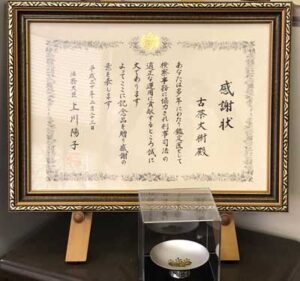 感謝状
古茶大樹殿
あなたは多年にわたり鑑定医として
検察事務に協力され刑事司法の
適正な運用に貢献するところ誠に
大であります
よってここに記念品を贈り感謝の
意を表します
平成三十年三月二十二日
法務大臣 上川陽子